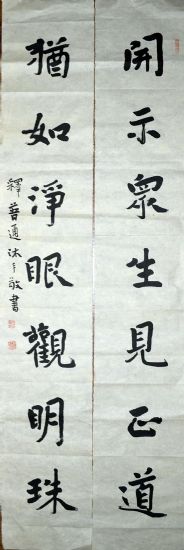 開示眾生見正道
猶如淨眼觀明珠
釋普通沐手敬書